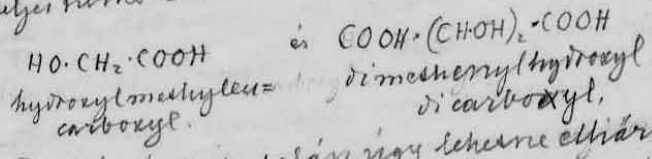 HO·CH₂·COOH és COOH·(CH·OH)₂·COOH
hydroxylmethylen= dimethenylhydroxyl
carboxyl. dicarboxyl.
úgy lehetne eljár